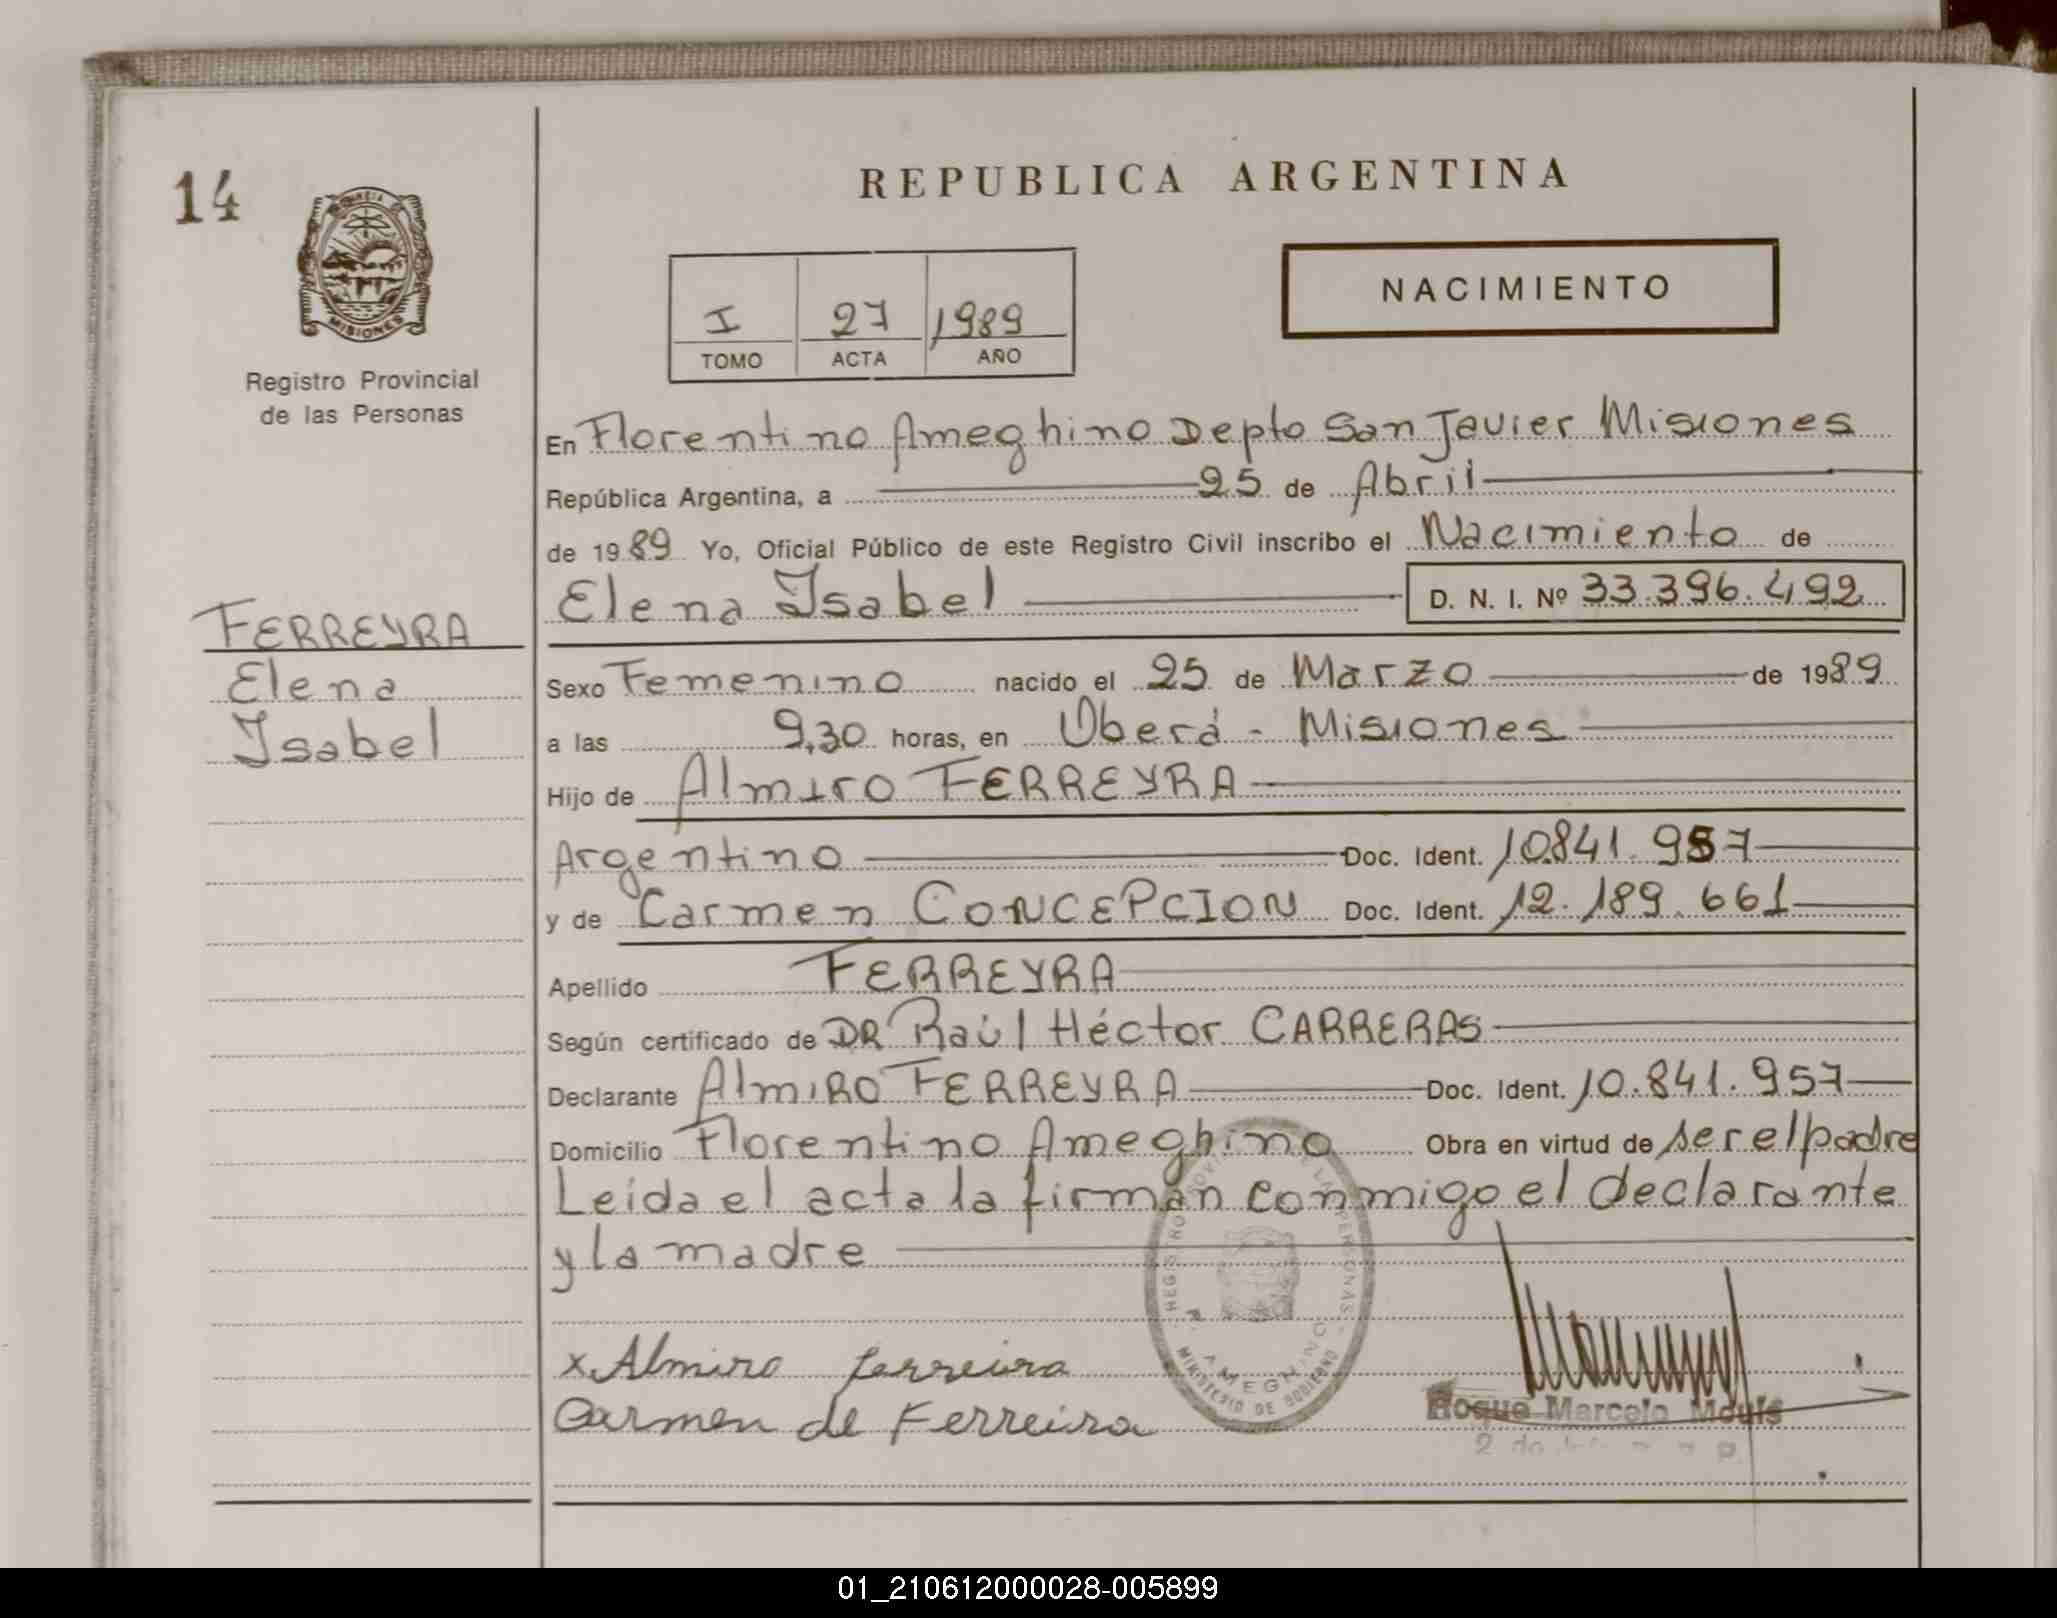 14
PROVINCIA DE
MISIONES
Registro Provincial
de las Personas
FERREYRA
Elena
Isabel
REPUBLICA ARGENTINA
I 27 1989
TOMO ACTA AÑO
NACIMIENTO
En Florentino Ameghino Depto San Javier Misiones
República Argentina, a 25 de Abril
de 1989 Yo, Oficial Público de este Registro Civil inscribo el Nacimiento de
Elena Isabel D. N. I. Nº 33.396.492
Sexo Femenino nacido el 25 de Marzo de 1989
a las 9,30 horas, en Oberá - Misiones
Hijo de Almiro FERREYRA
Argentino Doc. Ident. 10.841.957
y de Carmen CONCEPCION Doc. Ident. 12.189.661
Apellido FERREYRA
Según certificado de DR Raúl Héctor CARRERAS
Declarante AlmiRO FERREYRA Doc. Ident. 10.841.957
Domicilio Florentino Ameghino Obra en virtud de ser el padre
Leída el acta la firman conmigo el declarante
y la madre
REGISTRO PROVINCIAL DE LAS PERSONAS
AMEGHINO
MINISTERIO DE GOBIERNO
x Almiro ferreira
Carmen de Ferreira
Roque Marcelo
01_210612000028-005899